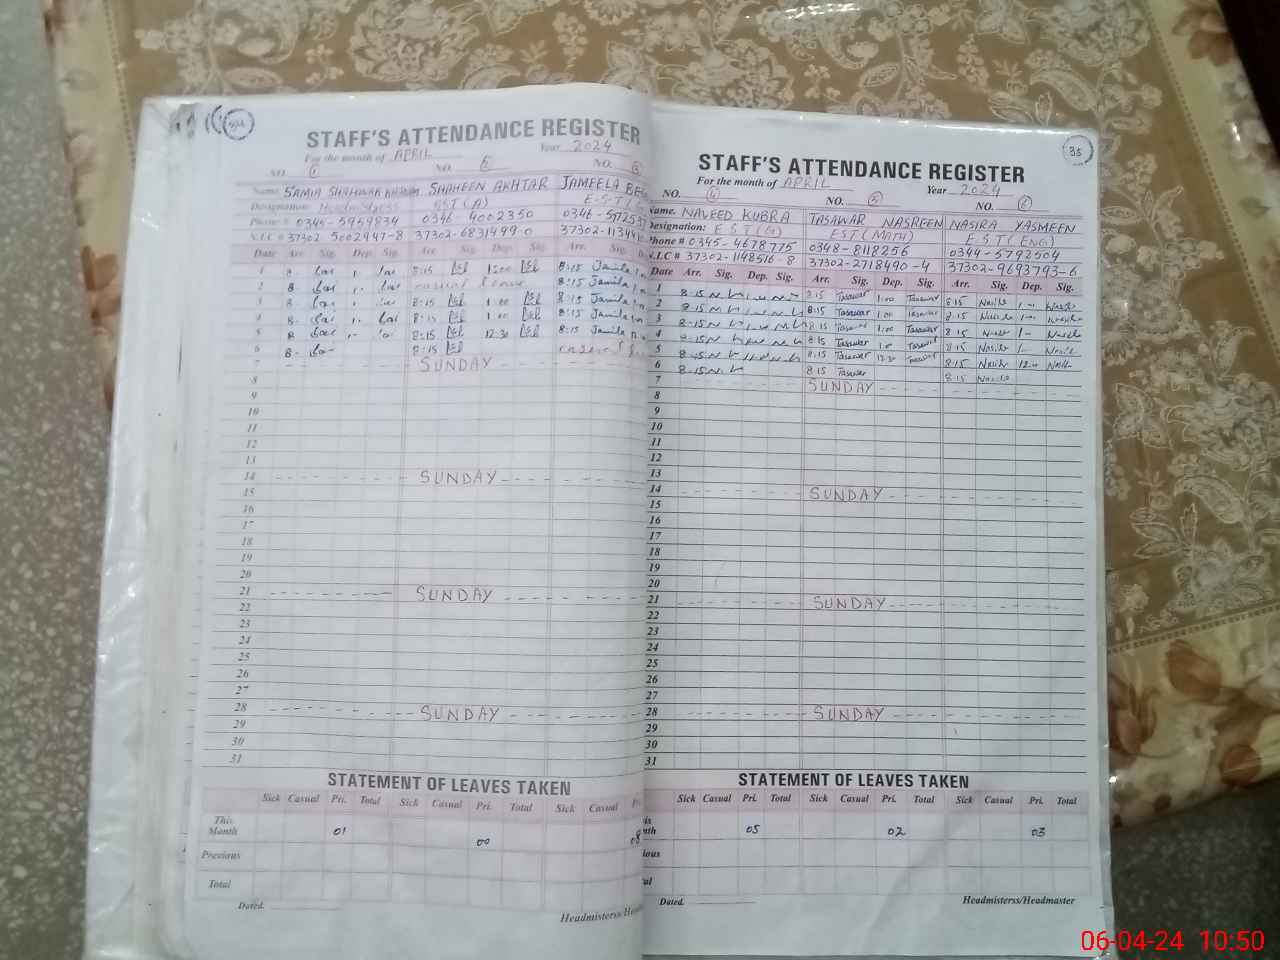 34
STAFF'S ATTENDANCE REGISTER
For the month of APRIL Year 2024
NO. 1 NO. 2 NO. 3
Name SAMIA SHAHWAR SHAHEEN AKHTAR JAMEELA BE
Designation Headmistress EST (A) E.S.T
Phone # 0346-5959834 0346-4002350 0346-
N.I.C # 37302-5002947-8 37302-6831499-0 37302-
Date Arr. Sig. Dep. Sig. Arr. Sig. Dep. Sig. Arr. Sig.
1 8. 8:15 1:00 8:15 Jamila
2 8. casual leave 8:15 Jamila
3 8:15 1:00 8:15 Jamila
4 8. 8:15 1:00 8:15 Jamila
5 8. 8:15 12:30 8:15 Jamila
6 8. 8:15 casual
7 SUNDAY
8
9
10
11
12
13
14 SUNDAY
15
16
17
18
19
20
21 SUNDAY
22
23
24
25
26
27
28 SUNDAY
29
30
31
STATEMENT OF LEAVES TAKEN
Sick Casual Pri. Total Sick Casual Pri. Total Sick Casual
This Month 01 00 08
Previous
Total
Dated.
Headmisterss/Hea
35
STAFF'S ATTENDANCE REGISTER
For the month of APRIL Year 2024
NO. 4 NO. 5 NO. 6
Name. NAVEED KUBRA TASAWAR NASREEN NASIRA YASMEEN
Designation: E S T (G) EST (MATH) E S T (ENG)
Phone # 0345-4678775 0348-8118256 0344-5792504
N.I.C # 37302-1148516-8 37302-2718490-4 37302-9693793-6
Date Arr. Sig. Dep. Sig. Arr. Sig. Dep. Sig. Arr. Sig. Dep. Sig.
1 8-15 8:15 Tasawar 1:00 Tasawar 8:15 Nasiko
2 8-15 8:15 Tasawar 1:00 Tasawar 8:15
3 8-15 8:15 Tasawar 1:00 Tasawar 8:15
4 8-15 8:15 Tasawar 1:0 Tasawar 8:15
5 8-15 8:15 Tasawar 12:30 Tasawar 8:15 12:00
6 8-15 8:15 Tasawar 8:15
7 SUNDAY
8
9
10
11
12
13
14 SUNDAY
15
16
17
18
19
20
21 SUNDAY
22
23
24
25
26
27
28 SUNDAY
29
30
31
STATEMENT OF LEAVES TAKEN
Sick Casual Pri. Total Sick Casual Pri. Total Sick Casual Pri. Total
is nth 05 02 03
ious
al
Dated.
Headmisterss/Headmaster
06-04-24 10:50